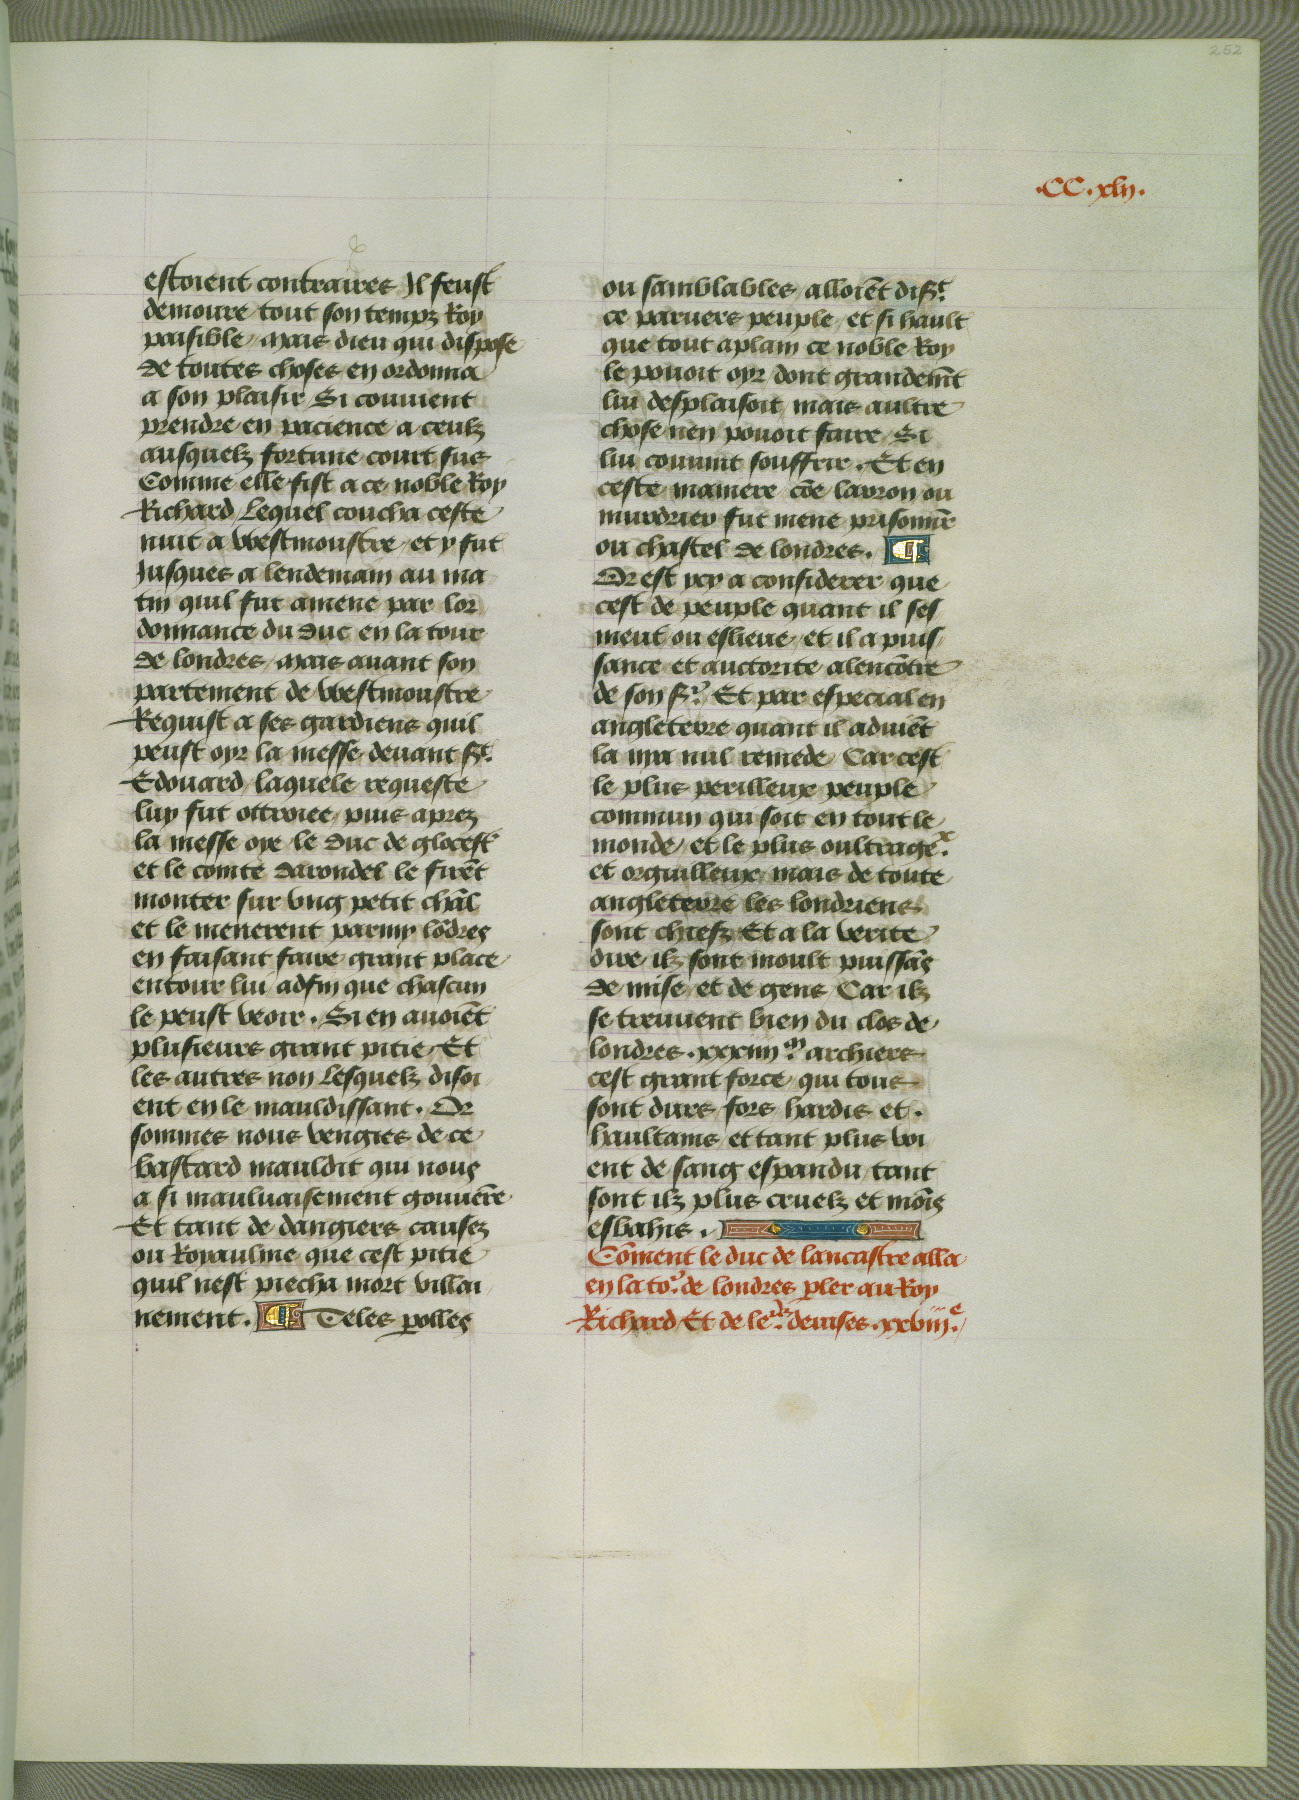 252
.CC.xlij.
estoient contraires Il feust
demoure tout son tempz Roy
paisible, mais dieu qui dispose
de toutes choses en ordonna
a son plaisir Si convient
prendre en pacience a ceulz
ausquelz fortune court sus
Comme elle fist a ce noble Roy
Richard Lequel coucha ceste
nuit a Westmoustre, et y fut
Jusques a lendemain au ma
tin quil fut amene par lor
donnance du Duc en la tour
de londres, mais avant son
partement de Westmoustre
Requist a ses gardiens quil
peust oyr la messe devant sᵗ.
Edouard, laquele requeste
luy fut ottroiee, puis aprez
la messe oye le Duc de glocest᾽
et le comte Darondel le firēt
monter sur ung petit chāl
et le menerent parmy lōdres
en faisant faire grant place
entour lui adfin que chascun
le peust veoir. Si en avoiēt
plusieurs grant pitie, Et
les autres non Lesquelz disoi
ent en le mauldissant. Or
sommes nous vengies de ce
bastard mauldit qui nous
a si mauluaisement gouvēre
Et tant de dangiers causez
ou Royaulme que cest pitie
quil nest piecha mort villai
nement. ¶ Teles ꝑolles
ou samblables, alloiēt disᵗ.
ce pervers peuple, et si hault
que tout aplain ce noble Roy
le pouoit oyr dont grandemēt
lui desplaisoit mais aultre
chose nen pouoit faire Si
lui convint souffrir. Et en
ceste maniere cōe larron ou
murdrier fut mene prisonnīe
ou chastel de londres. ¶
Or est ycy a considerer que
cest de peuple quant il ses
meut ou eslieve, et il a puis
sance et auctorite alencōtre
de son sʳ. Et par especial en
angleterre quant il adviēt
la nya nul remede, Car cest
le plus perilleux peuple
commun qui soit en tout le
monde, et le plus oultrageˣ.
et orguilleux, mais de toute
angleterre les londriens
sont chiefz Et a la verite
dire, ilz sont moult puissās
de mise, et de gens, Car ilz
se treuvent bien du clos de
londres .xxiiijᵐ. archiers
cest grant force, qui tous
sont durs, fors hardis et.
haultains, et tant plus voi
ent de sang espandu, tant
sont ilz plus cruelz et mōis
esbahis.
Cōment le duc de lancastre alla
en la toʳ. de londres ꝑler au Roy
Richard Et de leʳˢ. devises .xxviijᵉ.